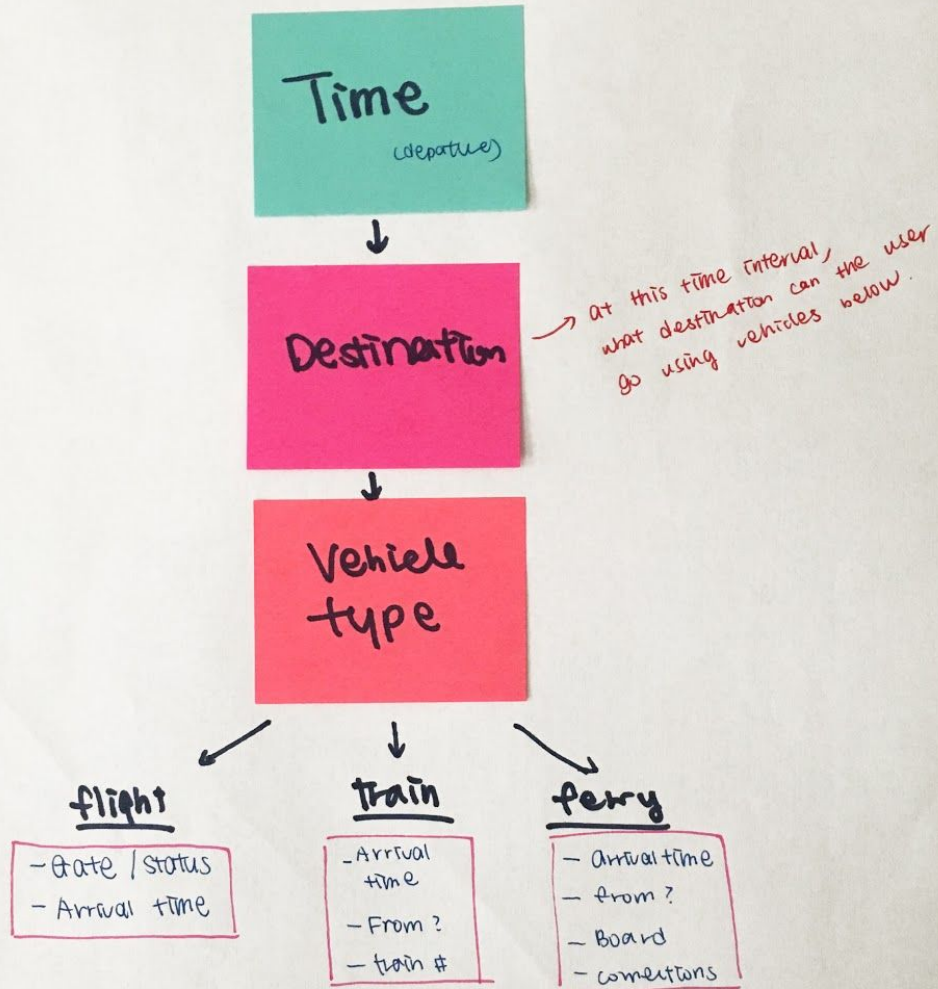 Time
(depature)
Destination
at this time interval,
what destination can the user
go using vehicles below.
Vehicle
type
flight
- Gate / status
- Arrival time
train
- Arrival
time
- From ?
- train #
ferry
- arrival time
- from ?
- Board
- connections